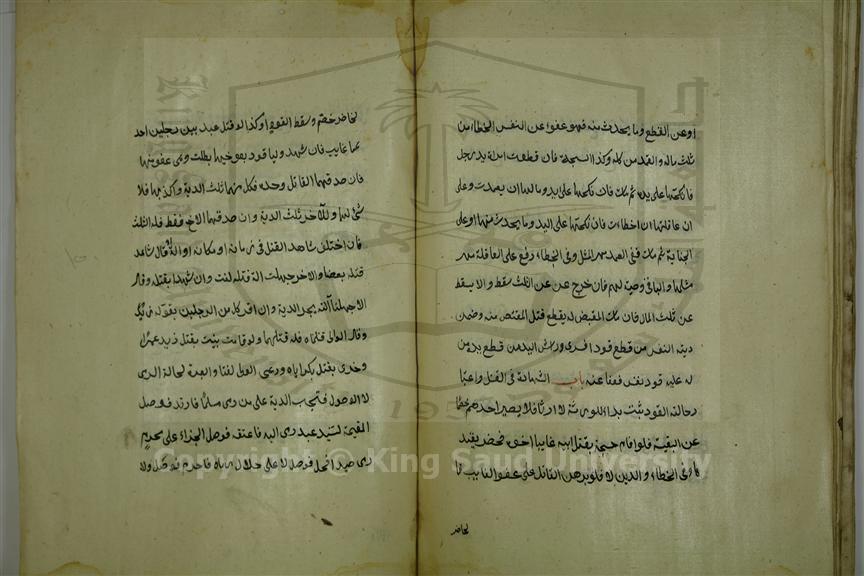 او عن القطع وما يحدث منه فهو عفو عن النفس الخطاء من
ثلث ماله والعمد من كله وكذا الشجة فان قطعت امراة يد رجل
فنكحها على يده ثم مات فان نكحها على يده وما لها ان تعمدت وعلى
ان عاقلتها ان اخطاءت فان نكحها على اليد وما يحدث منها او على
الجناية ثم مات ففي العمد مهر المثل وفي الخطاء رفع على العاقلة مهر
مثلها والباقي وصية لهم فان خرج عن الثلث سقط والا يسقط
عن ثلث المال فان مات المقتص له بقطع قتل المقتص منه وضمن
دية النفس من قطع قودا فسرى وارش اليد من قطع يد من
له عليه قود نفس فعفا عنه باب الشهادة في القتل واعتبا
ر حالته القود ثبت بداء للورثة لا ارثا فلا يصير احدهم خصما
عن البقية فلو اقام حجة بقتل ابيه غايبا اخوه فحضر يعيد
ها وفي الخطاء والدين لا فلو برهن القاتل على عفو الغايب فا
لحاضر
لحاضر خصم وسقط القود وكذا لو قتل عبد بين رجلين احد
هما غايب فان شهد وليا قود بعفو اخيهما بطلت وهي عفو منهما
فان صدقهما القاتل وحده فلكل منهم ثلث الدية وان كذبهما فلا
شئ لهما وللاخر ثلث الدية وان صدقهما الاخ فقط فله الثلث
فان اختلف شاهد القتل في زمانه او مكانه او الته او قال شاهد
قتله بعصا والاخر جهلت الة قتله لغت وان شهدا بقتله وقالا
جهلنا آلته يجب الدية وان اقر كل من الرجلين بقتله
وقال الولي قتلتماه فله قتلهما ولو قامت بينة بقتل زيد عمرا
واخرى بقتل بكر اياه وادعى الولي لغتا والعبرة لحالة الرمي
لا الوصول فتجب الدية على من رمى مسلما فارتد فوصل
القيمة لسيد عبد رمى اليه فاعتق فوصل الجزاء على محرم
رمى صيدا فحل فوصل لا على حلال رماه فاحرم فوصل ولا
Copyright © King Saud University
1957